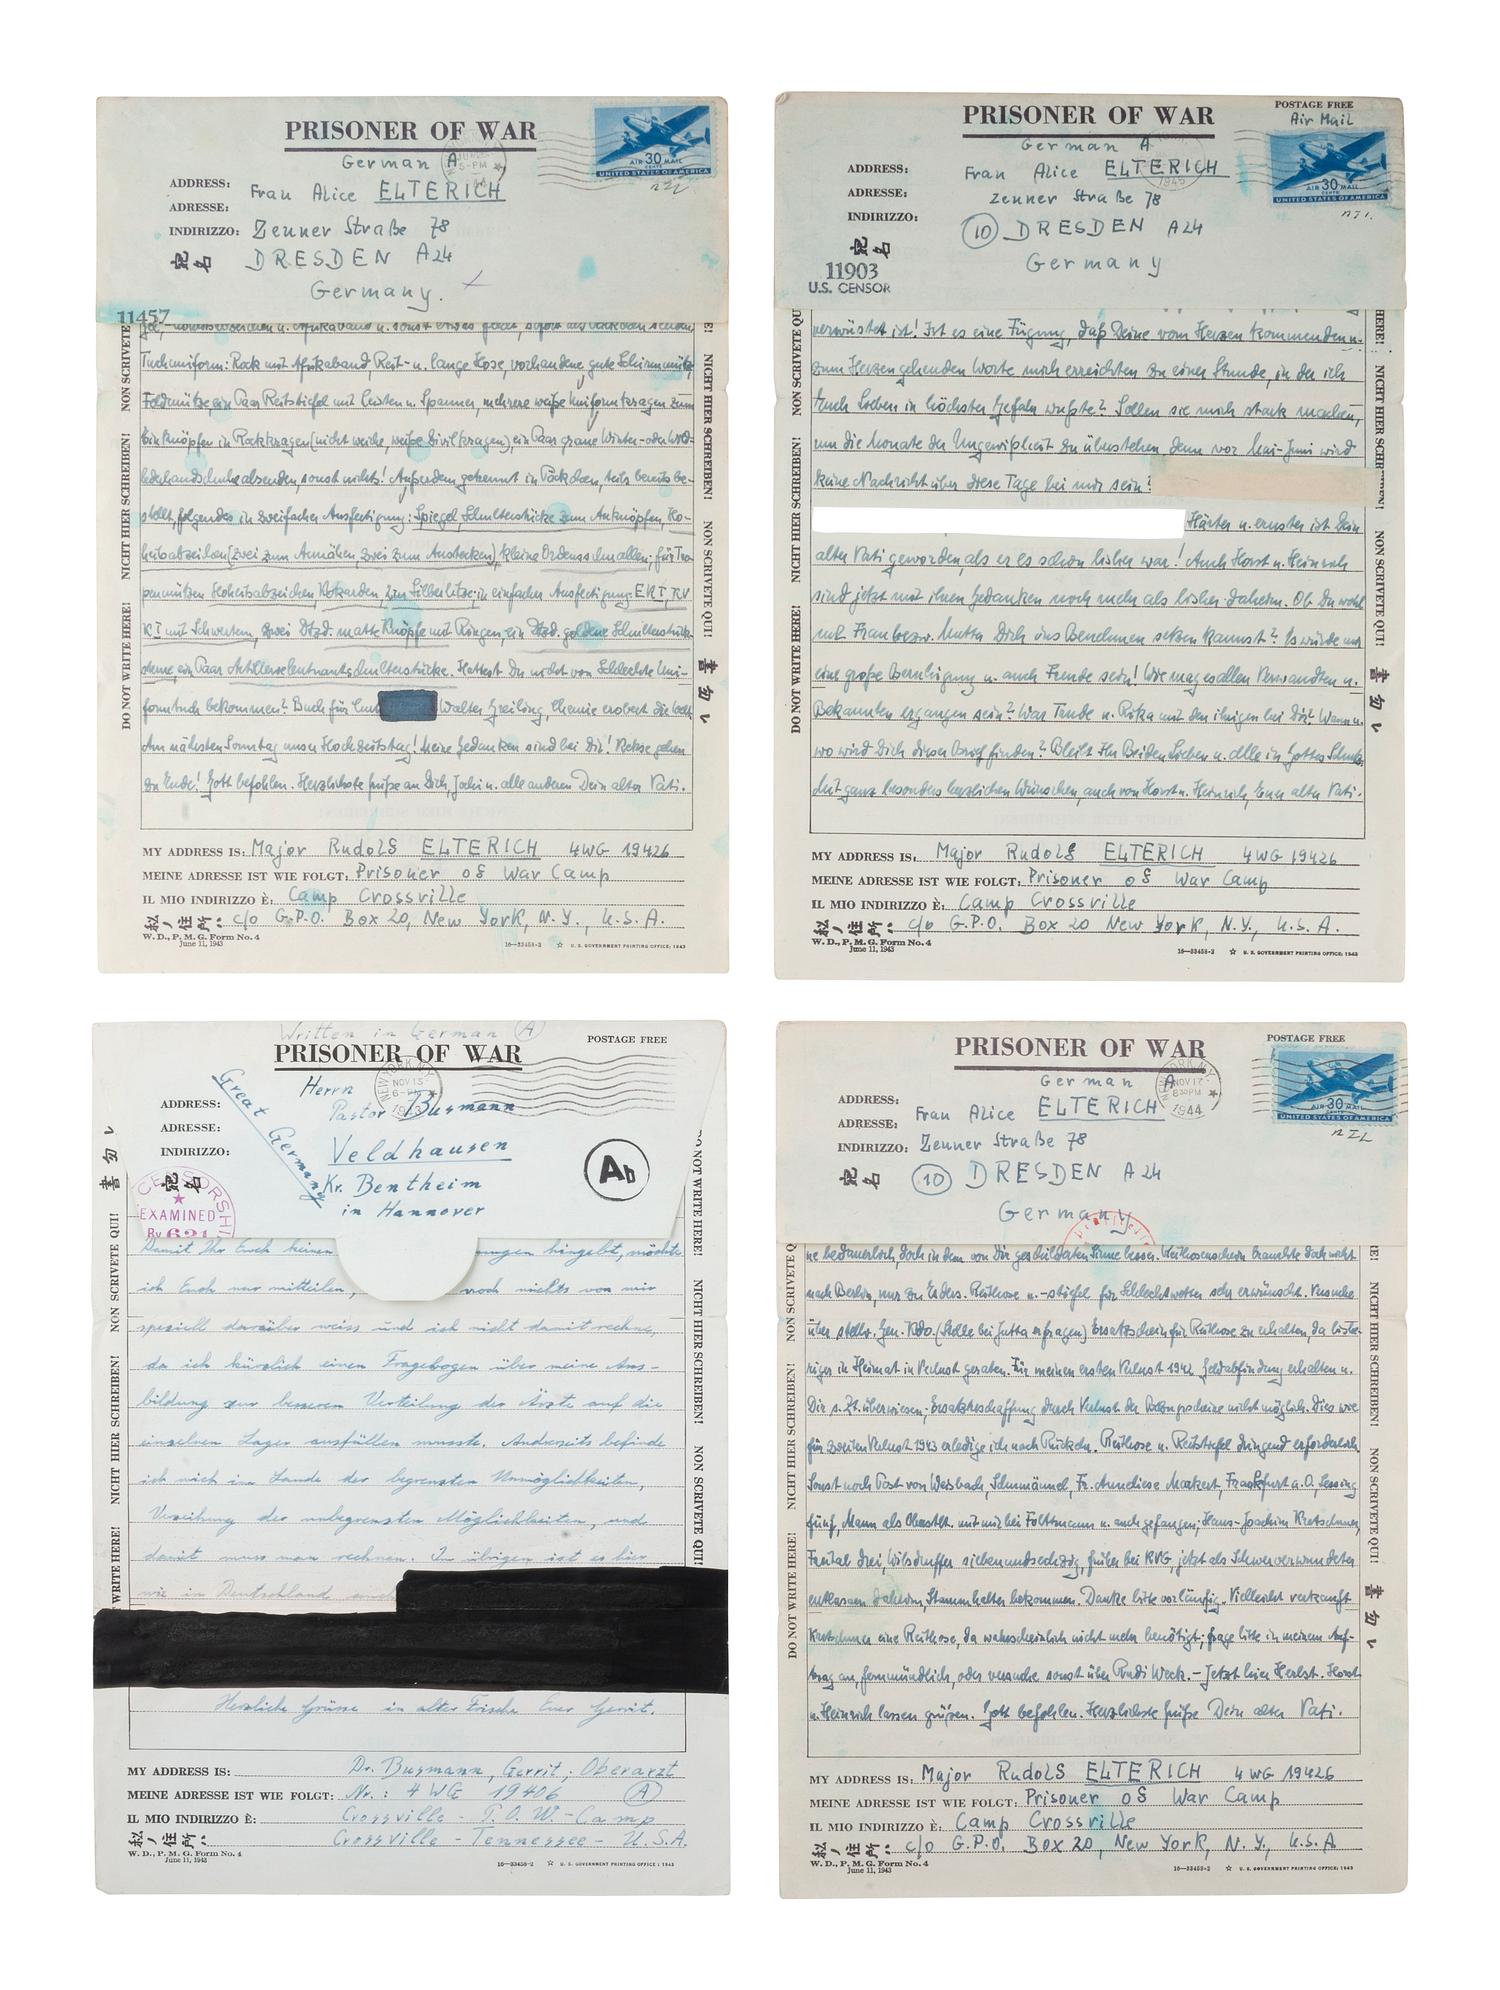 PRISONER OF WAR
German A
AIR 30 MAIL
CENTS
UNITED STATES OF AMERICA
ADDRESS: Frau Alice ELTERICH
ADRESSE:
INDIRIZZO: Zenner Straße 78
宛名 DRESDEN A24
Germany.
11457
Tuchuniform: Rock mit Afrikaband, Reit- u. lange Hose, vorhandene gute Schirmmütze,
Feldmütze, ein Paar Reitstiefel mit Leisten u. Spanner, mehrere weiße Uniformkragen zum
Einknöpfen in Rockkragen (nicht weiche, weiße Zivilkragen), ein Paar graue Winter- oder Wild-
lederhandschuhe absenden, sonst nichts! Außerdem getrennt in Päckchen, teils bereits be-
stellt, folgendes in zweifacher Ausfertigung: Spiegel, Schulterstücke zum Anknöpfen, Ho-
heitsabzeichen (zwei zum Annähen, zwei zum Anstecken), kleine Ordensschnallen; für Tro-
penmützen Hoheitsabzeichen, Kokarden, 2m Silberlitze; in einfacher Ausfertigung: EKI,
KI mit Schwertern, zwei Dtzd. matte Knöpfe mit Ringen, ein Dtzd. goldene Schulterstück-
sterne, ein Paar Artillerieleutnantsschulterstücke. Hattest Du nicht von Schlechte Uni-
formtuch bekommen? Buch für Walter Greiling, Chemie erobert die Welt.
Am nächsten Sonntag unser Hochzeitstag! Meine Gedanken sind bei Dir! Kekse gehen
zu Ende! Gott befohlen. Herzlichste Grüße an Dich, Jochi u. alle anderen Dein alter Vati.
DO NOT WRITE HERE! NICHT HIER SCHREIBEN! NON SCRIVETE
NICHT HIER SCHREIBEN! NON SCRIVETE QUI!
MY ADDRESS IS: Major Rudolf ELTERICH 4WG 19426
MEINE ADRESSE IST WIE FOLGT: Prisoner of War Camp
IL MIO INDIRIZZO È: Camp Crossville
私ノ住所: c/o G.P.O. Box 20, New York, N.Y., U.S.A.
W. D., P. M. G. Form No. 4
June 11, 1943
16—33458-2 ☆ U. S. GOVERNMENT PRINTING OFFICE: 1943
PRISONER OF WAR
POSTAGE FREE
Air Mail
German A
1945
AIR 30 MAIL
CENTS
UNITED STATES OF AMERICA
ADDRESS: Frau Alice ELTERICH
ADRESSE: Zenner Straße 78
INDIRIZZO: (10) DRESDEN A24
宛名 Germany
11903
U.S. CENSOR
verwüstet ist! Ist es eine Fügung, daß Deine vom Herzen kommenden u.
zum Herzen gehenden Worte mich erreichten zu einer Stunde, in der ich
Euch Lieben in höchster Gefahr wußte? Sollen sie mich stark machen,
um die Monate der Ungewißheit zu überstehen, denn vor Mai-Juni wird
keine Nachricht über diese Tage bei mir sein!
Härter u. ernster ist Dein
alter Vati geworden, als er es schon bisher war! Auch Horst u. Heinrich
sind jetzt mit ihren Gedanken noch mehr als bisher daheim. Ob Du wohl
mit Frau bezw. Mutter Dich ins Benehmen setzen kannst? Es würde uns
eine große Beruhigung u. auch Freude sein! Wie mag es allen Verwandten u.
Bekannten ergangen sein? War Trude u. Rika mit den ihrigen bei Dir? Wann u.
wo wird Dich dieser Brief finden? Bleibt Ihr Beiden Lieben u. alle in Gottes Schutz.
Mit ganz besonders herzlichen Wünschen, auch von Horst u. Heinrich, Euer alter Vati.
DO NOT WRITE HERE! NICHT HIER SCHREIBEN! NON SCRIVETE QU
HERE! NICHT HIER SCHREIBEN! NON SCRIVETE QUI!
MY ADDRESS IS: Major Rudolf ELTERICH 4WG 19426
MEINE ADRESSE IST WIE FOLGT: Prisoner of War Camp
IL MIO INDIRIZZO È: Camp Crossville
私ノ住所: c/o G.P.O. Box 20 New York, N.Y., U.S.A.
W. D., P. M. G. Form No. 4
June 11, 1943
16—33458-2 ☆ U. S. GOVERNMENT PRINTING OFFICE: 1943
Written in German (A)
PRISONER OF WAR
POSTAGE FREE
NEW YORK, N.Y.
NOV 15
1943
Herrn
ADDRESS: Pastor Busmann
ADRESSE: Veldhausen
INDIRIZZO: Kr. Bentheim
宛名 in Hannover
Great Germany
Ab
CENSORSHI
EXAMINED
By 621
Damit Ihr Euch keinen ungen hingebt, möchte
ich Euch nur mitteilen, noch nichts von mir
speziell darüber weiss und ich nicht damit rechne,
da ich kürzlich einen Fragebogen über meine Aus-
bildung zur besseren Verteilung der Ärzte auf die
einzelnen Lager ausfüllen musste. Andrerseits befinde
ich mich im Lande der begrenzten Unmöglichkeiten,
Verzeihung der unbegrenzten Möglichkeiten, und
damit muss man rechnen. Im übrigen ist es hier
wie in Deutschland
Herzliche Grüsse in alter Frische Euer Gerrit.
WRITE HERE! NICHT HIER SCHREIBEN! NON SCRIVETE QUI!
NOT WRITE HERE! NICHT HIER SCHREIBEN! NON SCRIVETE QUI!
MY ADDRESS IS: Dr. Busmann, Gerrit, Oberarzt
MEINE ADRESSE IST WIE FOLGT: Nr.: 4 WG 19406 (A)
IL MIO INDIRIZZO È: Crossville - P.O.W.-Camp
私ノ住所: Crossville - Tennessee - U.S.A.
W. D., P. M. G. Form No. 4
June 11, 1943
16—33458-2 ☆ U. S. GOVERNMENT PRINTING OFFICE: 1943
PRISONER OF WAR
POSTAGE FREE
German A
NEW YORK, N.Y.
NOV 17
8 30 PM
1944
AIR 30 MAIL
CENTS
UNITED STATES OF AMERICA
ADDRESS: Frau Alice ELTERICH
ADRESSE:
INDIRIZZO: Zenner Straße 78
宛名 (10) DRESDEN A24
Germany
ne bedauerlich, doch in dem von Dir geschilderten Sinne besser. Reithosenschein brauchte doch nicht
nach Berlin, nur zu Esders. Reithose u. -stiefel für Schlechtwetter sehr erwünscht. Versuche
über stellv. Gen. Kdo. (Stelle bei Jutta erfragen) Ersatzschein für Reithose zu erhalten, da bishe-
riger in Heimat in Verlust geraten. Für meinen ersten Verlust 1942 Geldabfindung erhalten u.
Dir s. Zt. überwiesen; Ersatzbeschaffung durch Verlust der Bezugsscheine nicht möglich. Dies wie
für zweiten Verlust 1943 erledige ich nach Rückk. Reithose u. Reitstiefel dringend erforderlich.
Sonst noch Post von Weisbach, Schmännel, Fr. Anneliese Mackert, Frankfurt a.O., Lessing
fünf, Mann als Oberstlt. mit mir bei Foltmann u. auch gefangen; Hans-Joachim Kretschmer,
Freital drei, Wilsdruffer siebenundsechzig, früher bei RVG, jetzt als Schwerverwundeter
entlassen daheim, Stammhalter bekommen. Danke bitte vorläufig. Vielleicht verkauft
Kretschmer eine Reithose, da wahrscheinlich nicht mehr benötigt; frage bitte in meinem Auf-
trag an, fernmündlich, oder versuche sonst über Rudi Weck. — Jetzt hier Herbst. Horst
u. Heinrich lassen grüßen. Gott befohlen. Herzlichste Grüße Dein alter Vati.
DO NOT WRITE HERE! NICHT HIER SCHREIBEN! NON SCRIVETE Q
NICHT HIER SCHREIBEN! NON SCRIVETE QUI!
MY ADDRESS IS: Major Rudolf ELTERICH 4WG 19426
MEINE ADRESSE IST WIE FOLGT: Prisoner of War Camp
IL MIO INDIRIZZO È: Camp Crossville
私ノ住所: c/o G.P.O. Box 20, New York, N.Y., U.S.A
W. D., P. M. G. Form No. 4
June 11, 1943
16—33458-2 ☆ U. S. GOVERNMENT PRINTING OFFICE: 1943